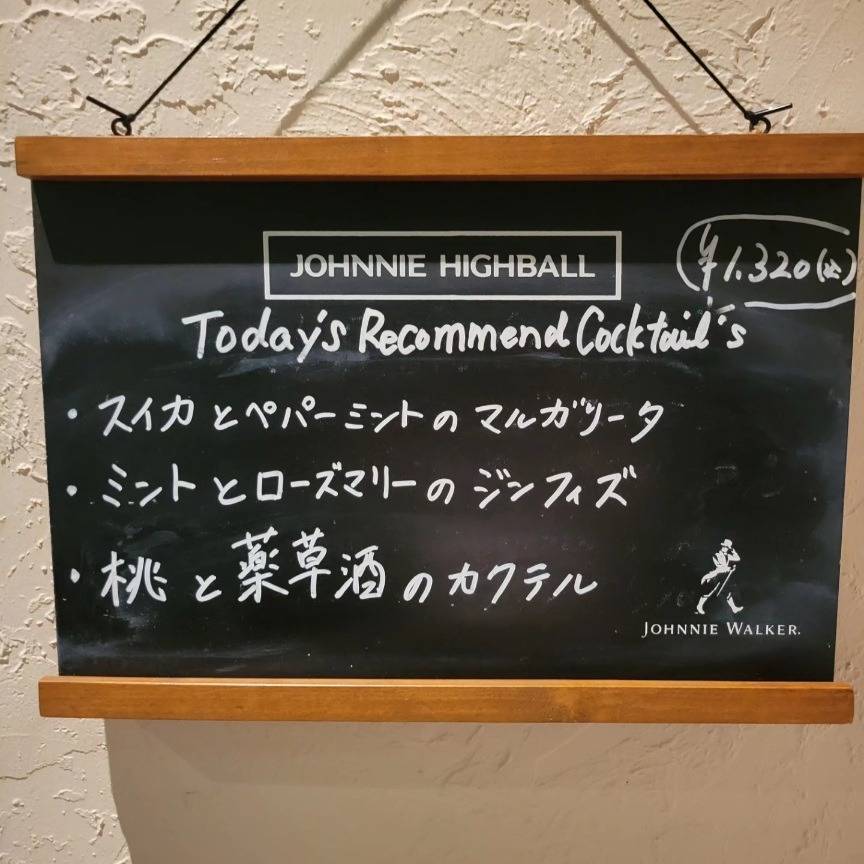 JOHNNIE HIGHBALL
¥1.320(込)
Today's Recommend Cocktail's
・スイカとペパーミントのマルガリータ
・ミントとローズマリーのジンフィズ
・桃と薬草酒のカクテル
JOHNNIE WALKER.